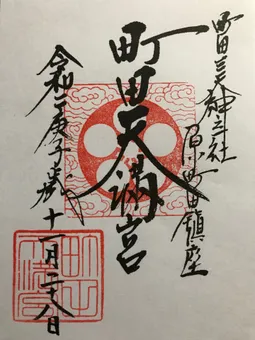 町田三天神之社
原町田鎮座
町田天満宮
令和二庚子歳十一月二十八日